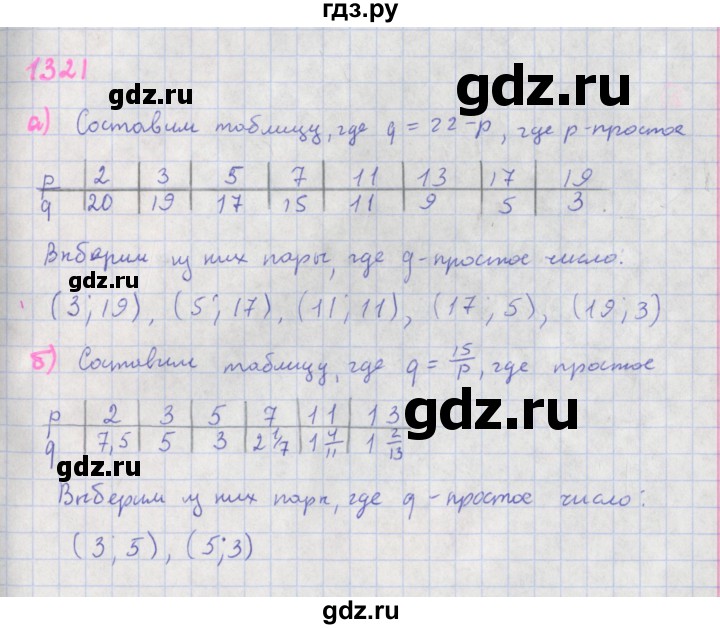 гдз.ру
1321
gdz.ru
а) Составим таблицу, где q = 22-p, где p-простое
p 2 3 5 7 11 13 17 19
q 20 19 17 15 11 9 5 3
gdz.ru
gdz.ru
Выберим из них пары, где q-простое число:
gdz.ru
(3;19), (5;17), (11;11), (17;5), (19;3)
б) Составим таблицу, где q = 15/p, где простое
gdz.ru
p 2 3 5 7 11 13
q 7,5 5 3 2 1/7 1 4/11 1 2/13
gdz.ru
gdz.ru
Выберим из них пары, где q-простое число:
(3;5), (5;3)
gdz.ru
gdz.ru